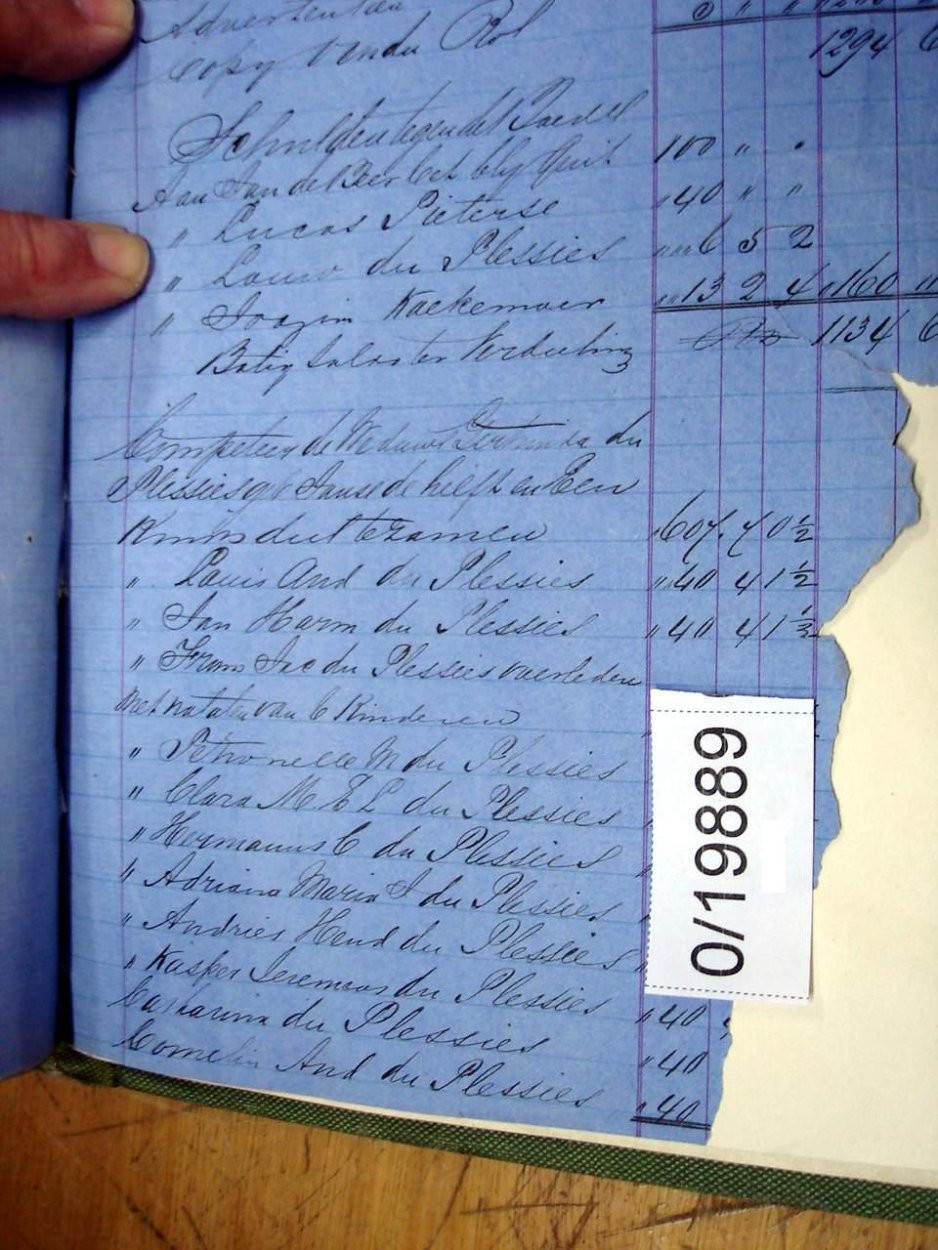 Advertentien
Copy Vendu Rol 1294 6
Schulden tegen del Boedel
Aan Jan de Beer Cet bly Quit 100 " "
" Lucas Pieterse " 40 " "
" Louw du Plessies " " 6 5 2
" Koekemoer " " 13 2 4 " 160 "
Batig Saldo ter Verdeeling 1134 6
Competeer de Weduwe du
Plessies de helft en Een
Kinds 607 4 0 ½
" Louis And du Plessies " 40 4 1 ½
" Jan Harm du Plessies " 40 4 1 ½
" Frans Jac du Plessies overleden
met van 6 Kinderen
" Petronella M du Plessies
" Clara M E L du Plessies
" Hermanus C du Plessies
" Adriana Maria J du Plessies
" Andries Hend du Plessies
" Kasper Jeremias du Plessies " 40
Catharina du Plessies " 40
Cornelis And du Plessies " 40
0/19889